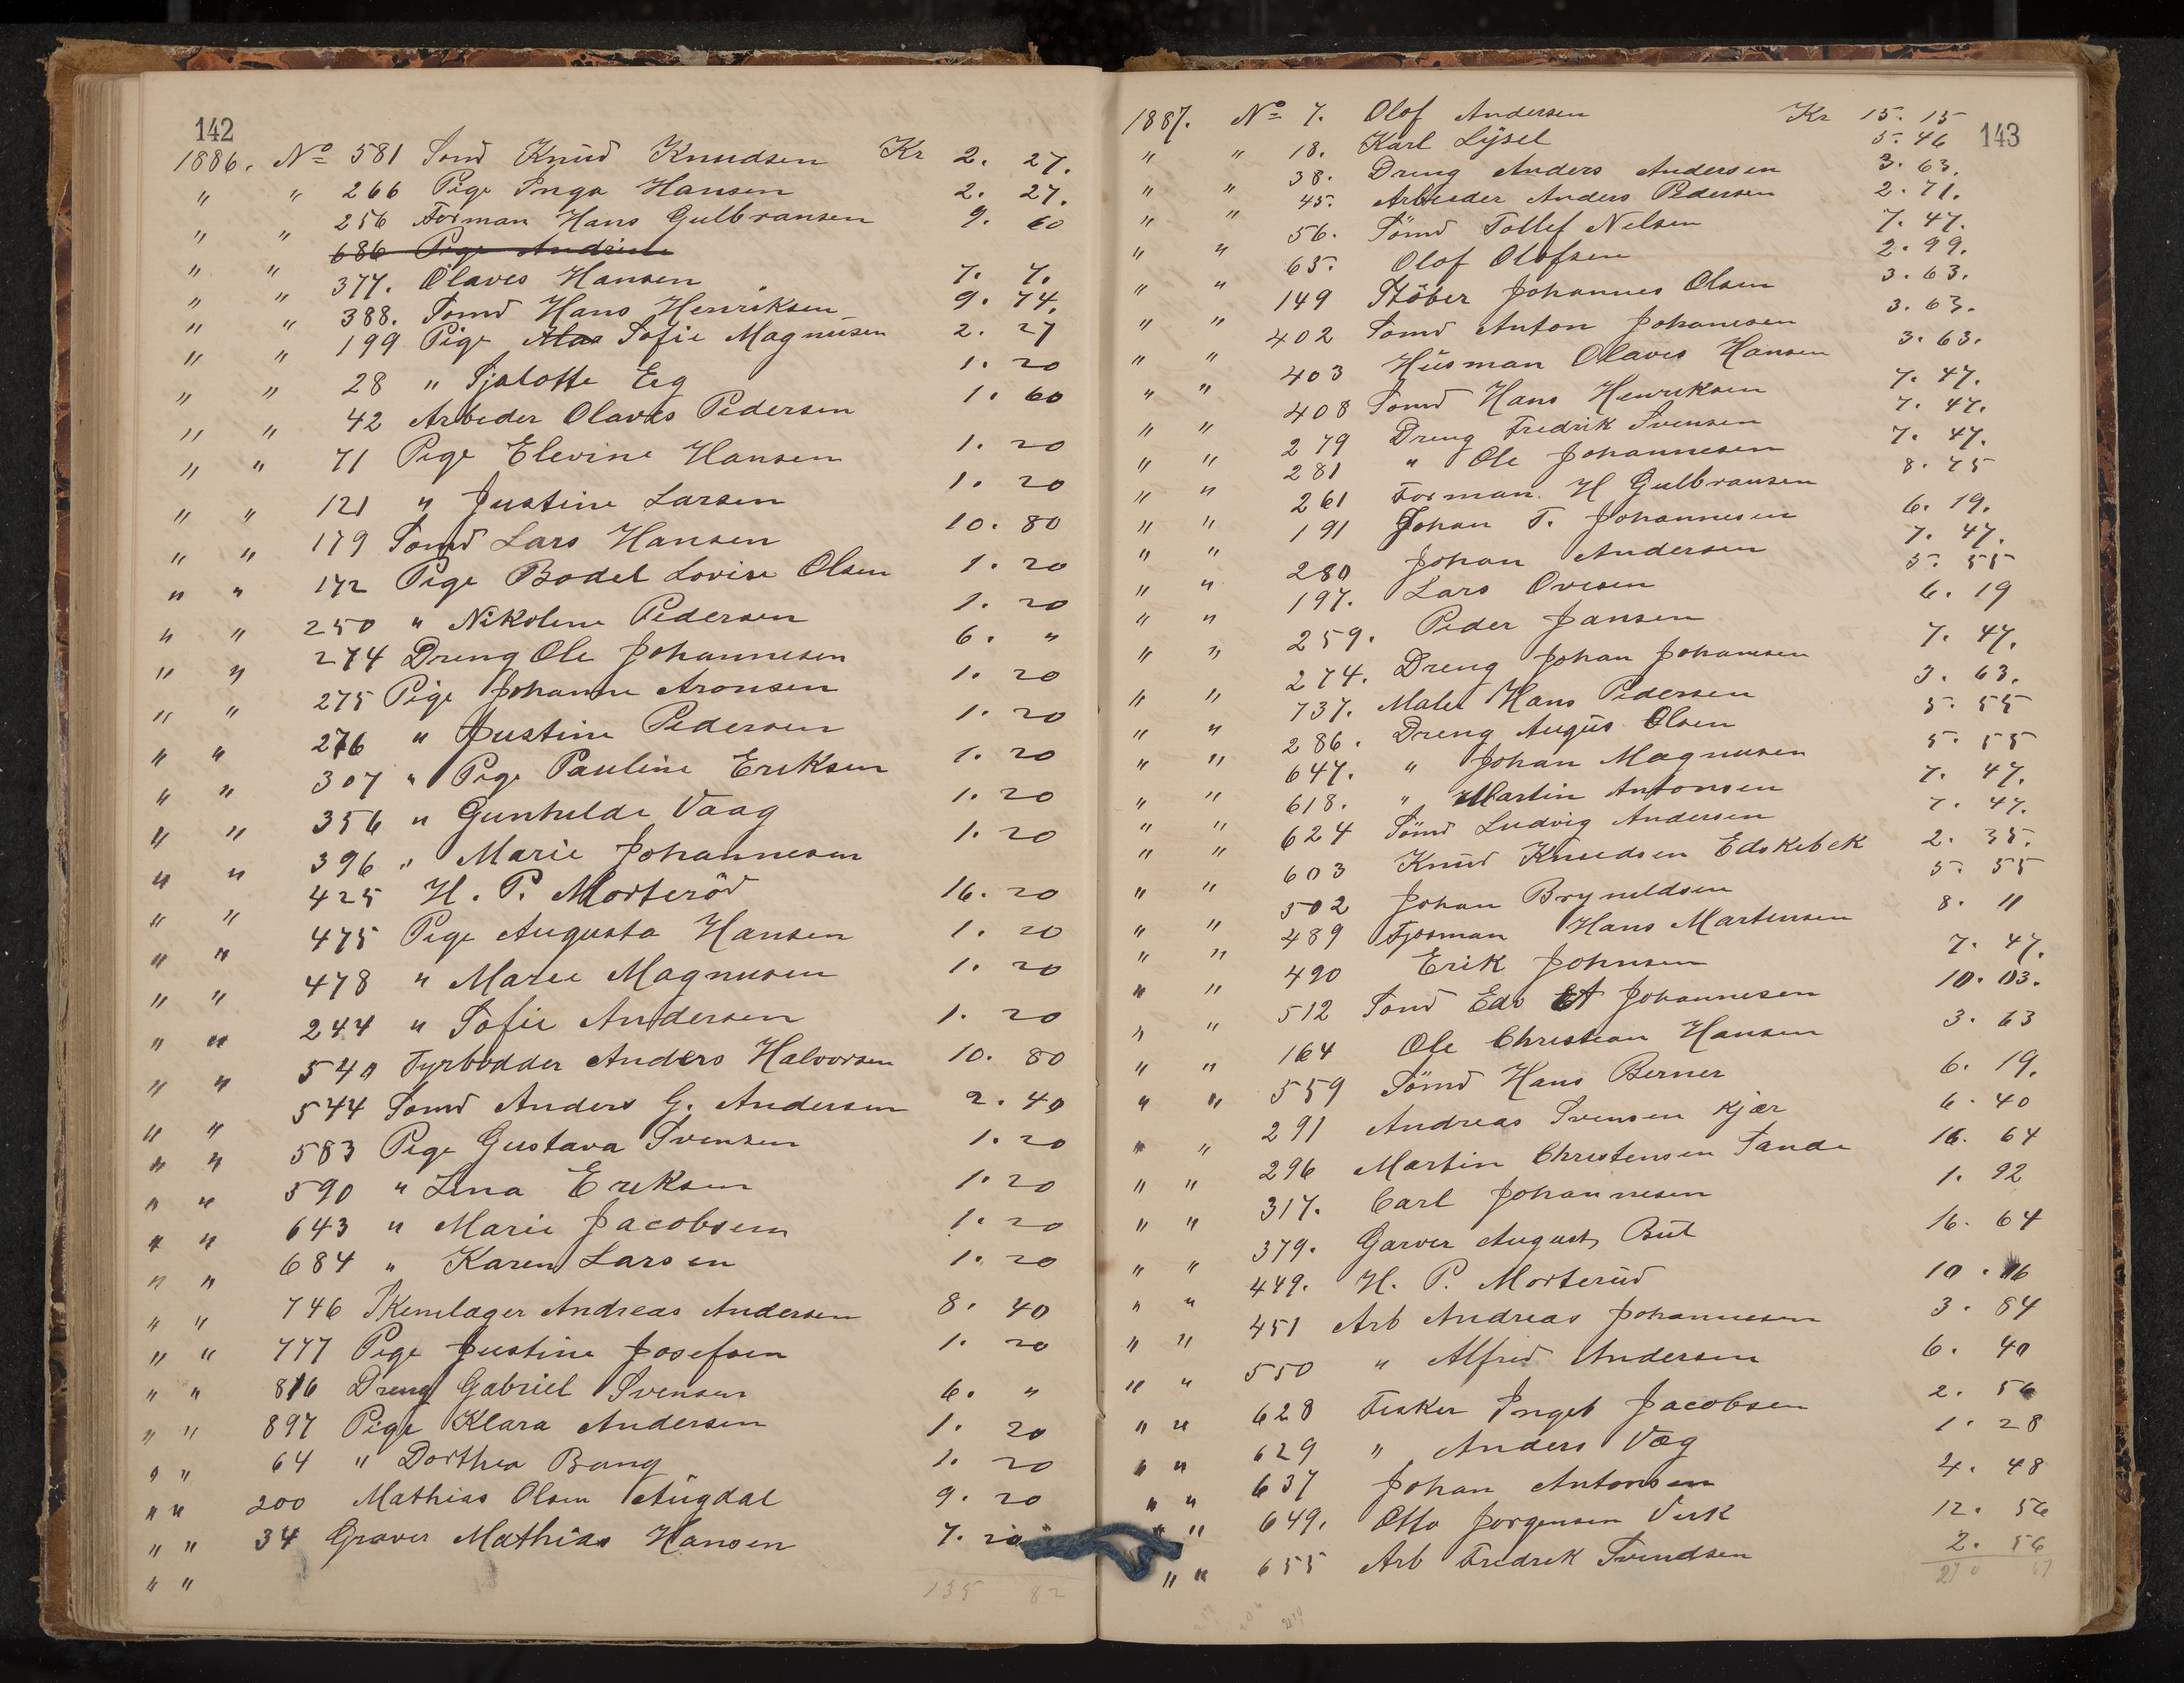 142
1886. No 581 Sömd Knud Knudsen Kr 2. 27.
" " 266 Pige Inga Hansen 2. 27.
" " 256 Forman Hans Gulbransen 9. 60
" " 686 Pige Andrine
" " 377. Olaves Hansen 7. 7.
" " 388. Sömd Hans Henriksen 9. 74.
" " 199 Pige Sofie Magnusen 2. 27
" " 28 " Sjalotte Eeg 1. 20
" " 42 Arbeder Olaves Pedersen 1. 60
" " 71 Pige Elevine Hansen 1. 20
" " 121 " Justine Larsen 1. 20
" " 179 Sömd Lars Hansen 10. 80
" " 172 Pige Bodel Lovise Olsen 1. 20
" " 250 " Nikoline Pedersen 1. 20
" " 274 Dreng Ole Johannesen 6. "
" " 275 Pige Johanne Aronsen 1. 20
" " 276 " Justine Pedersen 1. 20
" " 307 " Pige Pauline Eriksen 1. 20
" " 356 " Gunhilde Vaag 1. 20
" " 396 " Marie Johannesen 1. 20
" " 425 H. P. Morteröd 16. 20
" " 475 Pige Augusta Hansen 1. 20
" " 478 " Maree Magnusen 1. 20
" " 244 " Sofie Andersen 1. 20
" " 540 Fyrbödder Anders Halvorsen 10. 80
" " 544 Sömd Anders G. Andersen 2. 40
" " 583 Pige Gustava Svensen 1. 20
" " 590 " Lina Eriksen 1. 20
" " 643 " Marie Jacobsen 1. 20
" " 684 " Karen Larsen 1. 20
" " 746 Skenilager Andreas Andersen 8. 40
" " 777 Pige Justine Josefsen 1. 20
" " 816 Dreng Gabriel Svensen 6. "
" " 897 Pige Klara Andersen 1. 20
" " 64 " Dorthea Bang 1. 20
" " 200 Mathias Olsen Augdal 9. 20
" " 34 Graver Mathias Hansen 7. 20
" " 135 82
143
1887. No 7. Olof Andersen Kr 15. 15
" " 18. Karl Lysel 5. 46
" " 38. Dreng Anders Andersen 3. 63.
" " 45. Arbeider Anders Pedersen 2. 71.
" " 56. Sömd Tollef Nelsen 7. 47.
" " 65. Olof Olofsen 2. 99.
" " 149 Stöber Johannes Olsen 3. 63.
" " 402 Sömd Anton Johannesen 3. 63.
" " 403 Husman Olaves Hansen 3. 63.
" " 408 Sömd Hans Henriksen 7. 47.
" " 279 Dreng Fredrik Svensen 7. 47.
" " 281 " Ole Johannesen 7. 47.
" " 261 Forman H Gulbransen 8. 75
" " 191 Johan T. Johannesen 6. 19.
" " 280 Johan Andersen 7. 47.
" " 197. Lars Ovesen 5. 55
" " 259. Peder Jansen 6. 19
" " 274. Dreng Johan Johannesen 7. 47.
" " 737. Maler Hans Pedersen 3. 63.
" " 286. Dreng Augus Olsen 5. 55
" " 647. " Johan Magnusen 5. 55
" " 618. " Martin Antonsen 7. 47.
" " 624 Sömd Ludvig Andersen 7. 47.
" " 603 Knud Knudsen Edskebek 2. 35.
" " 502 Johan Bryneldsen 5. 55
" " 489 Fjosman Hans Martensen 8. 11
" " 490 Erik Johnsen 7. 47.
" " 512 Sömd Edv A Johannesen 10. 03.
" " 164 Ole Christian Hansen 3. 63
" " 559 Sömd Hans Berner 6. 19.
" " 291 Andreas Svensen Kjær 6. 40
" " 296 Martin Christensen Sande 16. 64
" " 317. Carl Johannesen 1. 92
" " 379. Garver August But 16. 64
" " 449. H. P. Morterud 10. 16
" " 451 Arb Andreas Johannesen 3. 84
" " 550 " Alfred Andersen 6. 40
" " 628 Fisker Ingeb Jacobsen 2. 56
" " 629 " Anders Væg 1. 28
" " 637 Johan Antonsen 4. 48
" " 649. Otto Jorgensen Virk 12. 56
" " 655 Arb Fredrek Svendsen 2. 56